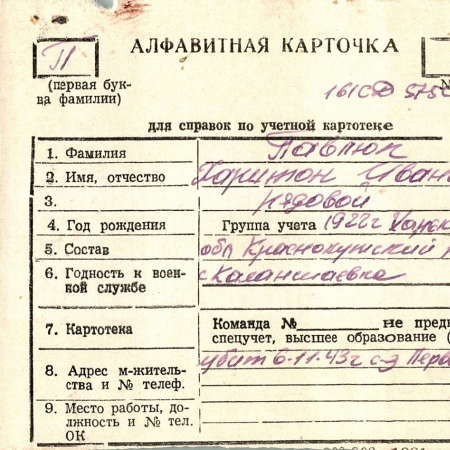 П
АЛФАВИТНАЯ КАРТОЧКА
(первая бук-
ва фамилии)
161СД 575
для справок по учетной картотеке
1. Фамилия Павлюк
2. Имя, отчество Харитон Иван
3. рядовой
4. Год рождения Группа учета 1922г Харьк
5. Состав обл Краснокутский р
6. Годность к воен-
ной службе
с Каганшаевка
7. Картотека Команда № не предн
спецучет, высшее образование (
8. Адрес м-житель-
ства и № телеф.
убит 6.11.43г с-з Перв
9. Место работы, до-
лжность и № тел.
ОК